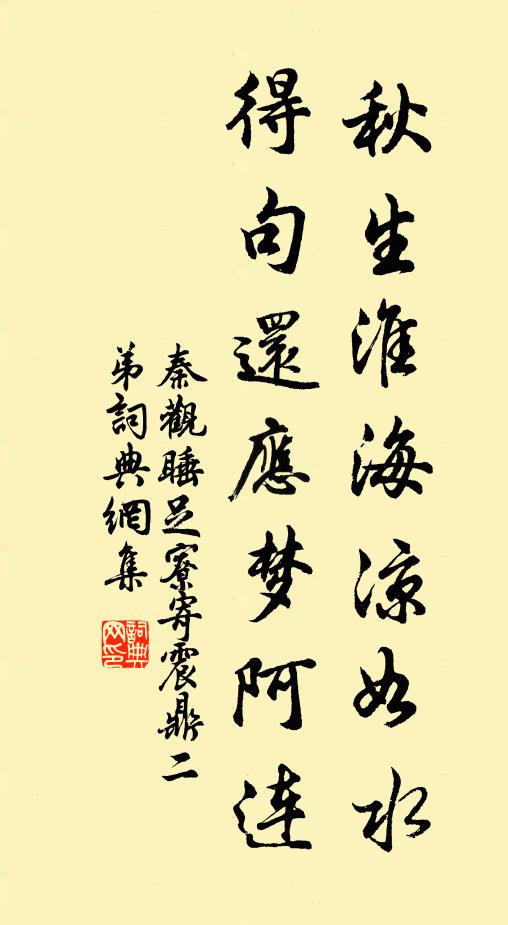 秋生淮海凉如水
得句還應梦阿連
秦觀睡足寮寄震鼎二
弟詞典網集
詞典网印